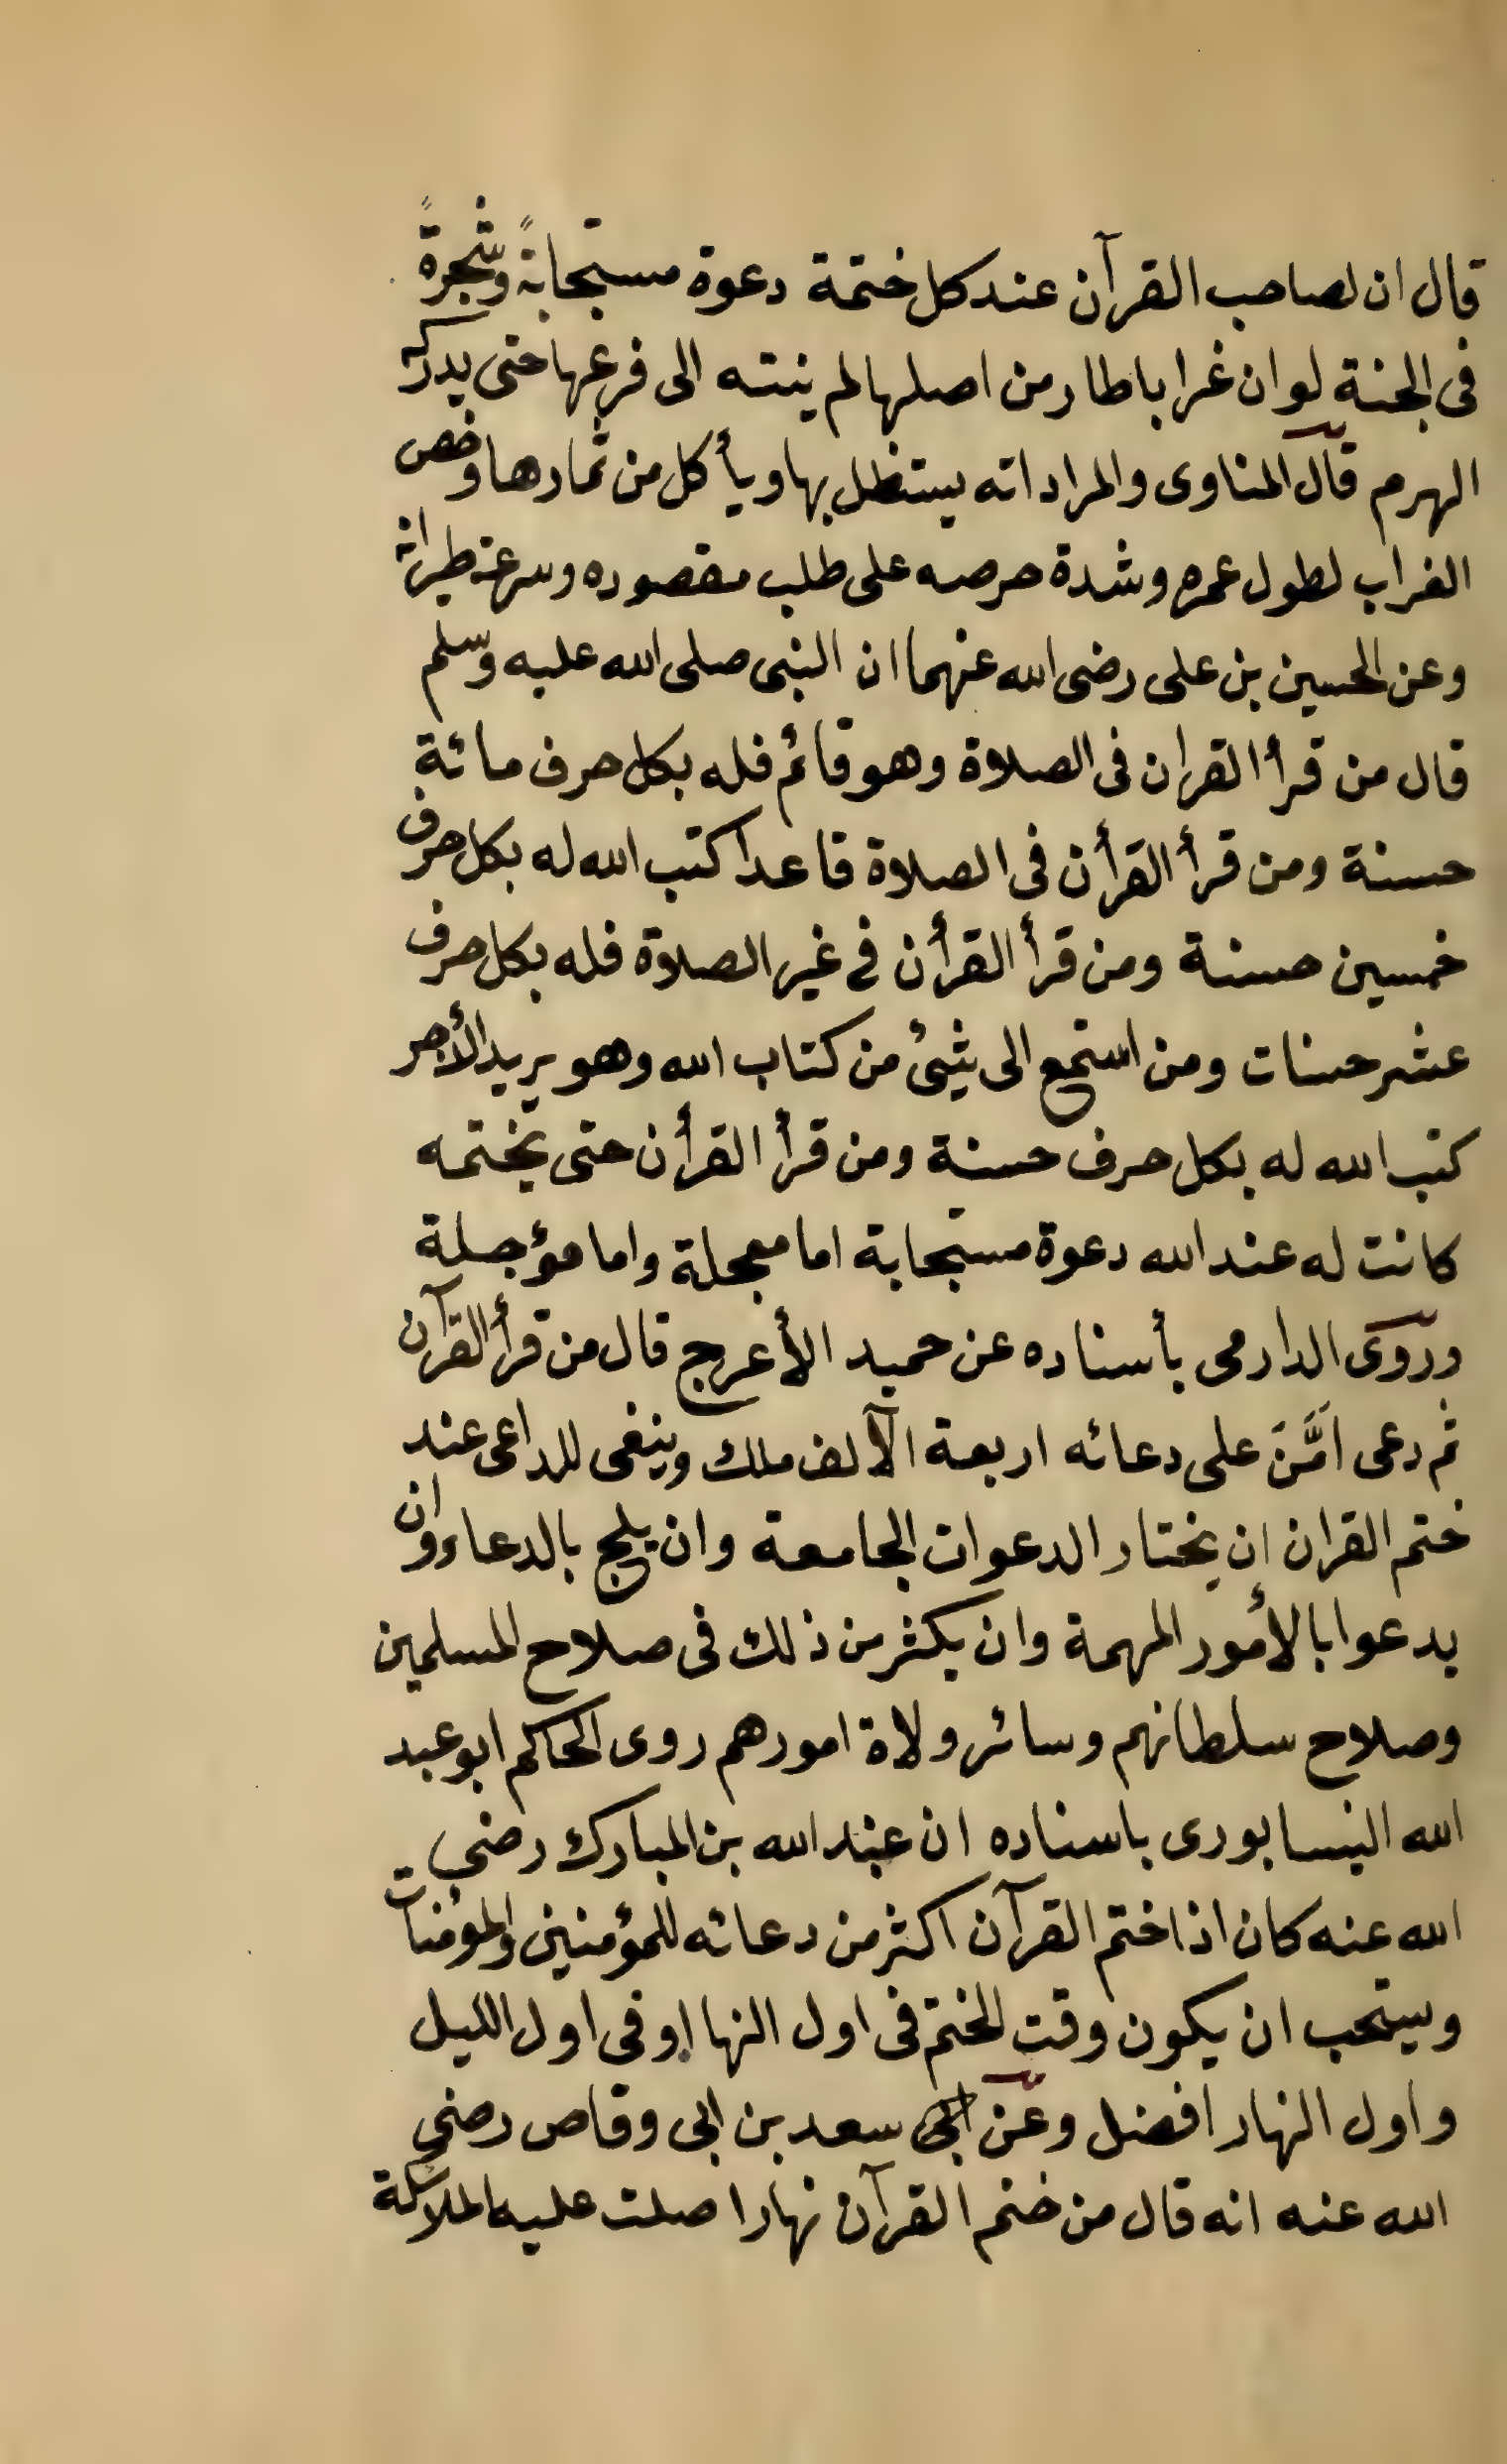 قال ان لصاحب القرآن عند كل ختمة دعوة مستجابةً وشجرةً
فى الجنة لو ان غرابا طار من اصلها لم ينته الى فرعها حتى يدركه
الهرم قال المناوى والمراد انه يستظل بها ويأكل من ثمارها وخص
الغراب لطول عمره وشدة حرصه على طلب مقصوده وسرعة طيرانه
وعن الحسين بن على رضى الله عنهما ان النبى صلى الله عليه وسلم
قال من قرأ القران فى الصلاة وهو قائم فله بكل حرف مائة
حسنة ومن قرأ القرأن فى الصلاة قاعدا كتب الله له بكل حرف
خمسين حسنة ومن قرأ القرأن فى غير الصلاة فله بكل حرف
عشر حسنات ومن استمع الى شئ من كتاب الله وهو يريد الأجر
كتب الله له بكل حرف حسنة ومن قرأ القرأن حتى يختمه
كانت له عند الله دعوة مستجابة اما معجلة واما مؤجلة
وروى الدارمى بأسناده عن حميد الأعرج قال من قرأ القرآن
ثم دعى امَّنَ على دعائه اربعة الآلف ملك وينغى للداعى عند
ختم القران ان يختار الدعوات الجامعة وان يلج بالدعاء وان
يدعوا بالأمور المهمة وان يكثر من ذلك فى صلاح المسلمين
وصلاح سلطانهم وسائر ولاة امورهم روى الحاكم ابو عبد
الله النيسابورى باسناده ان عبد الله بن المبارك رضي
الله عنه كان اذا ختم القرآن اكثر من دعائه للمؤمنين والمؤمنات
ويستحب ان يكون وقت الختم فى اول النها او فى اول الليل
واول النهار افضل وعن سعد بن ابى وقاص رضي
الله عنه انه قال من ختم القرآن نهارا صلت عليه الملائكة